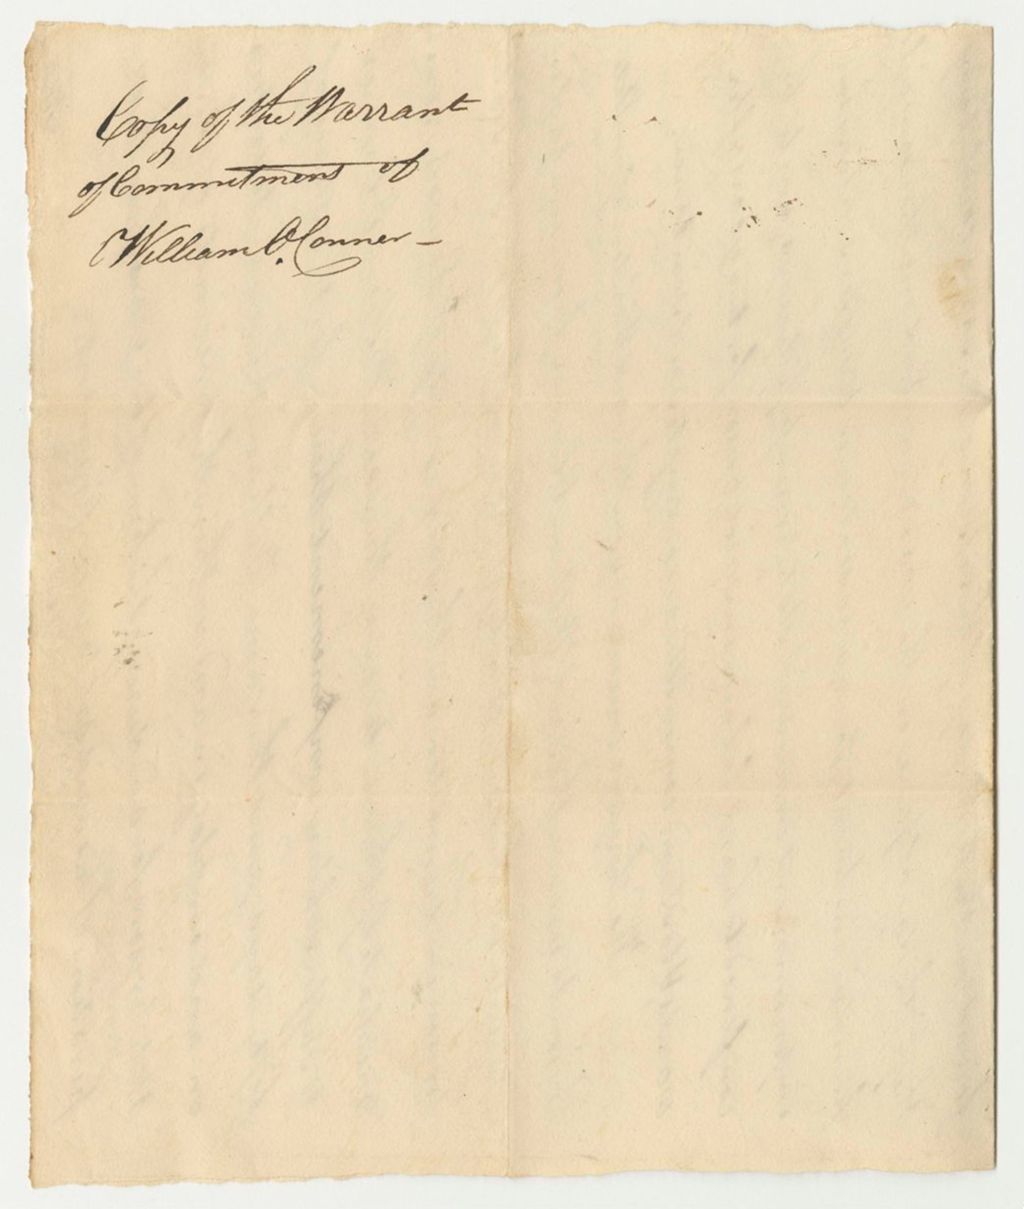 Copy of the Warrant
of Commitment of
William O. Conner –